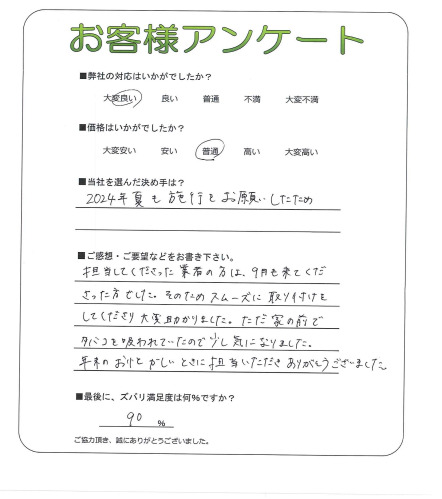 お客様アンケート
■弊社の対応はいかがでしたか？
大変良い 良い 普通 不満 大変不満
■価格はいかがでしたか？
大変安い 安い 普通 高い 大変高い
■当社を選んだ決め手は？
2024年夏も施行をお願いしたため
■ご感想・ご要望などをお書き下さい。
担当してくださった業者の方は、9月も来てくだ
さった方でした。そのためスムーズに取り付けを
してくださり大変助かりました。ただ家の前で
タバコを吸われていたので少し気になりました。
年末のお忙しいときに担当いただきありがとうございました
■最後に、ズバリ満足度は何％ですか？
90 ％
ご協力頂き、誠にありがとうございました。